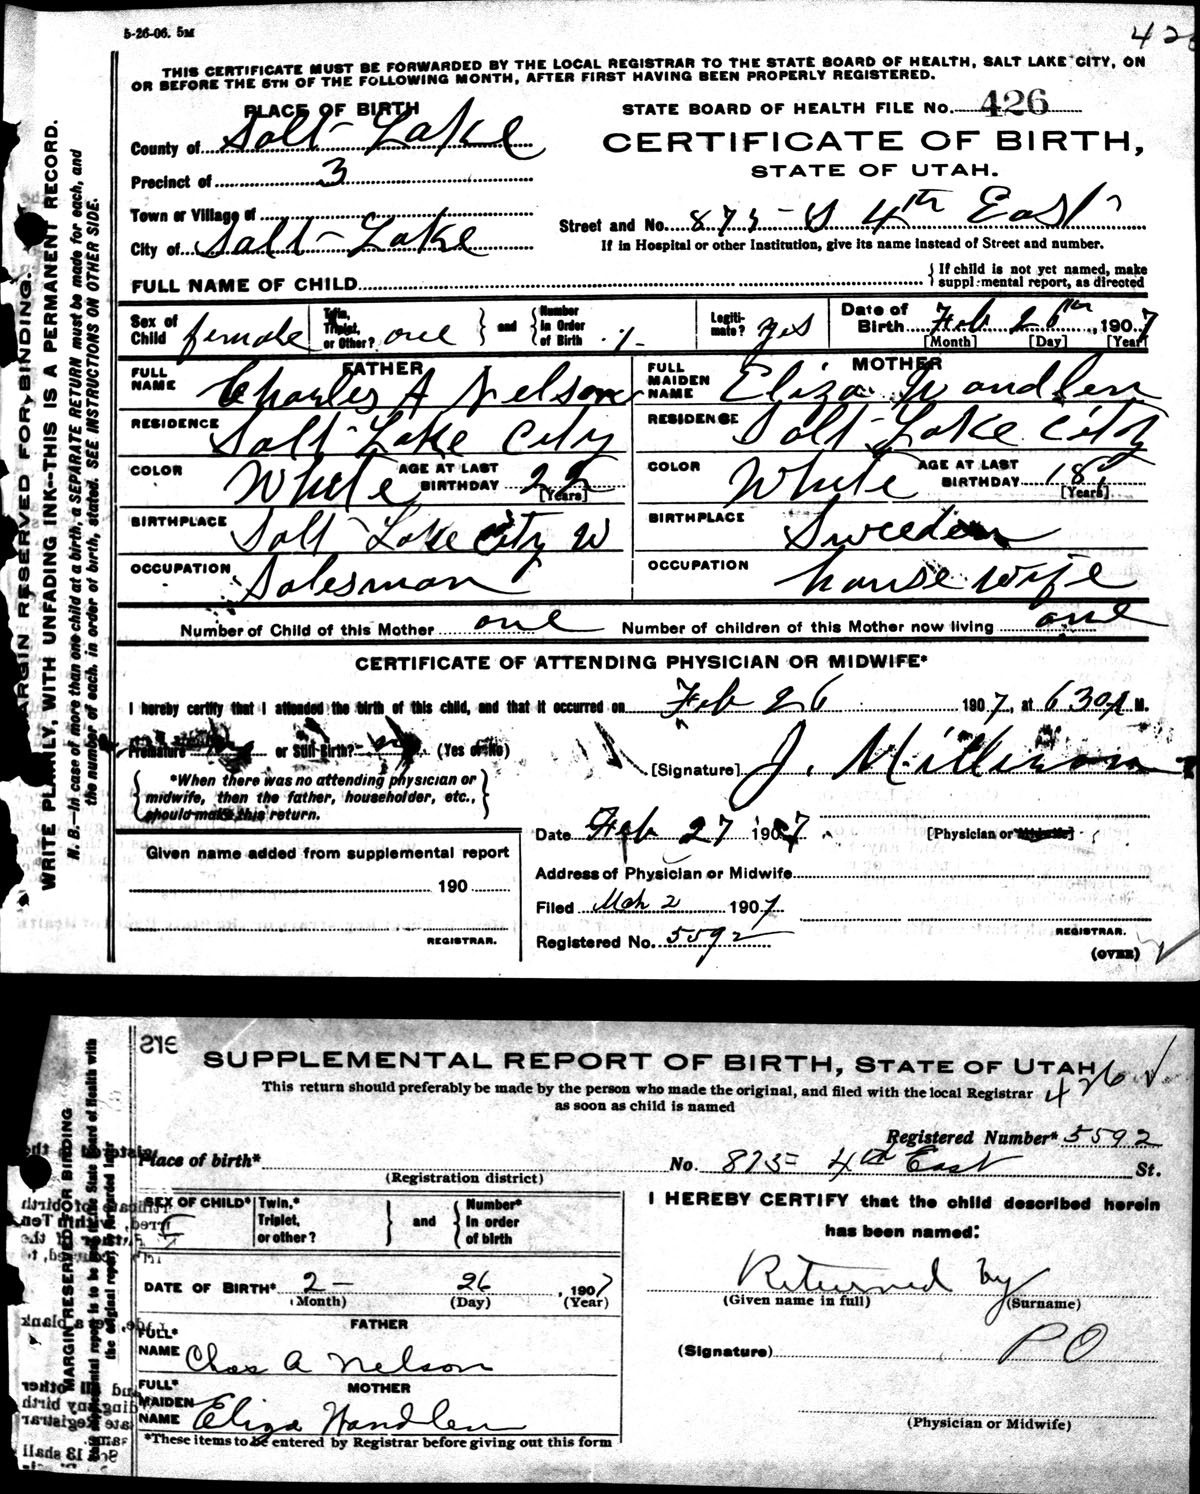 5-26-06. 5M
42
THIS CERTIFICATE MUST BE FORWARDED BY THE LOCAL REGISTRAR TO THE STATE BOARD OF HEALTH, SALT LAKE CITY, ON
OR BEFORE THE 5TH OF THE FOLLOWING MONTH, AFTER FIRST HAVING BEEN PROPERLY REGISTERED.
PLACE OF BIRTH
STATE BOARD OF HEALTH FILE No. 426
County of Salt Lake
CERTIFICATE OF BIRTH,
STATE OF UTAH.
Precinct of 3
Town or Village of
Street and No. 873 - S 4th East
City of Salt Lake
If in Hospital or other Institution, give its name instead of Street and number.
FULL NAME OF CHILD
{ If child is not yet named, make
supplemental report, as directed
Sex of Child female
Twin, Triplet, or Other? one } and { Number In Order of Birth 1
Legiti-mate? yes
Date of Birth Feb 26th, 1907
[Month] [Day] [Year]
FATHER
MOTHER
FULL NAME Charles A Nelson
FULL MAIDEN NAME Eliza Wandlen
RESIDENCE Salt Lake City
RESIDENCE Salt Lake City
COLOR White AGE AT LAST BIRTHDAY 22 [Years]
COLOR White AGE AT LAST BIRTHDAY 18 [Years]
BIRTHPLACE Salt Lake City
BIRTHPLACE Sweeden
OCCUPATION Salesman
OCCUPATION house wife
Number of Child of this Mother one
Number of children of this Mother now living one
CERTIFICATE OF ATTENDING PHYSICIAN OR MIDWIFE*
I hereby certify that I attended the birth of this child, and that it occurred on Feb 26 1907, at 6 30 p M.
Premature or Still Birth? (Yes or No)
[Signature] J.
{ *When there was no attending physician or
midwife, then the father, householder, etc.,
should make this return. }
Date Feb 27 1907
[Physician or Midwife]
Given name added from supplemental report
190
REGISTRAR.
Address of Physician or Midwife
Filed Mch 2 1907
Registered No. 5592
REGISTRAR.
(OVER)
MARGIN RESERVED FOR BINDING.
WRITE PLAINLY, WITH UNFADING INK--THIS IS A PERMANENT RECORD.
N. B.—In case of more than one child at a birth, a SEPARATE RETURN must be made for each, and
the number of each, in order of birth, stated. SEE INSTRUCTIONS ON OTHER SIDE.
SUPPLEMENTAL REPORT OF BIRTH, STATE OF UTAH
This return should preferably be made by the person who made the original, and filed with the local Registrar
as soon as child is named
426
Registered Number* 5592
Place of birth*
(Registration district)
No. 875 4th East St.
SEX OF CHILD* F
Twin,* Triplet, or other? } and { Number* In order of birth
I HEREBY CERTIFY that the child described herein
has been named:
DATE OF BIRTH* 2 - 26, 1907
(Month) (Day) (Year)
Returned by
(Given name in full) (Surname)
FATHER
FULL* NAME Chas A Nelson
(Signature) P O
MOTHER
FULL* MAIDEN NAME Eliza Wandlen
(Physician or Midwife)
*These items to be entered by Registrar before giving out this form
MARGIN RESERVED FOR BINDING